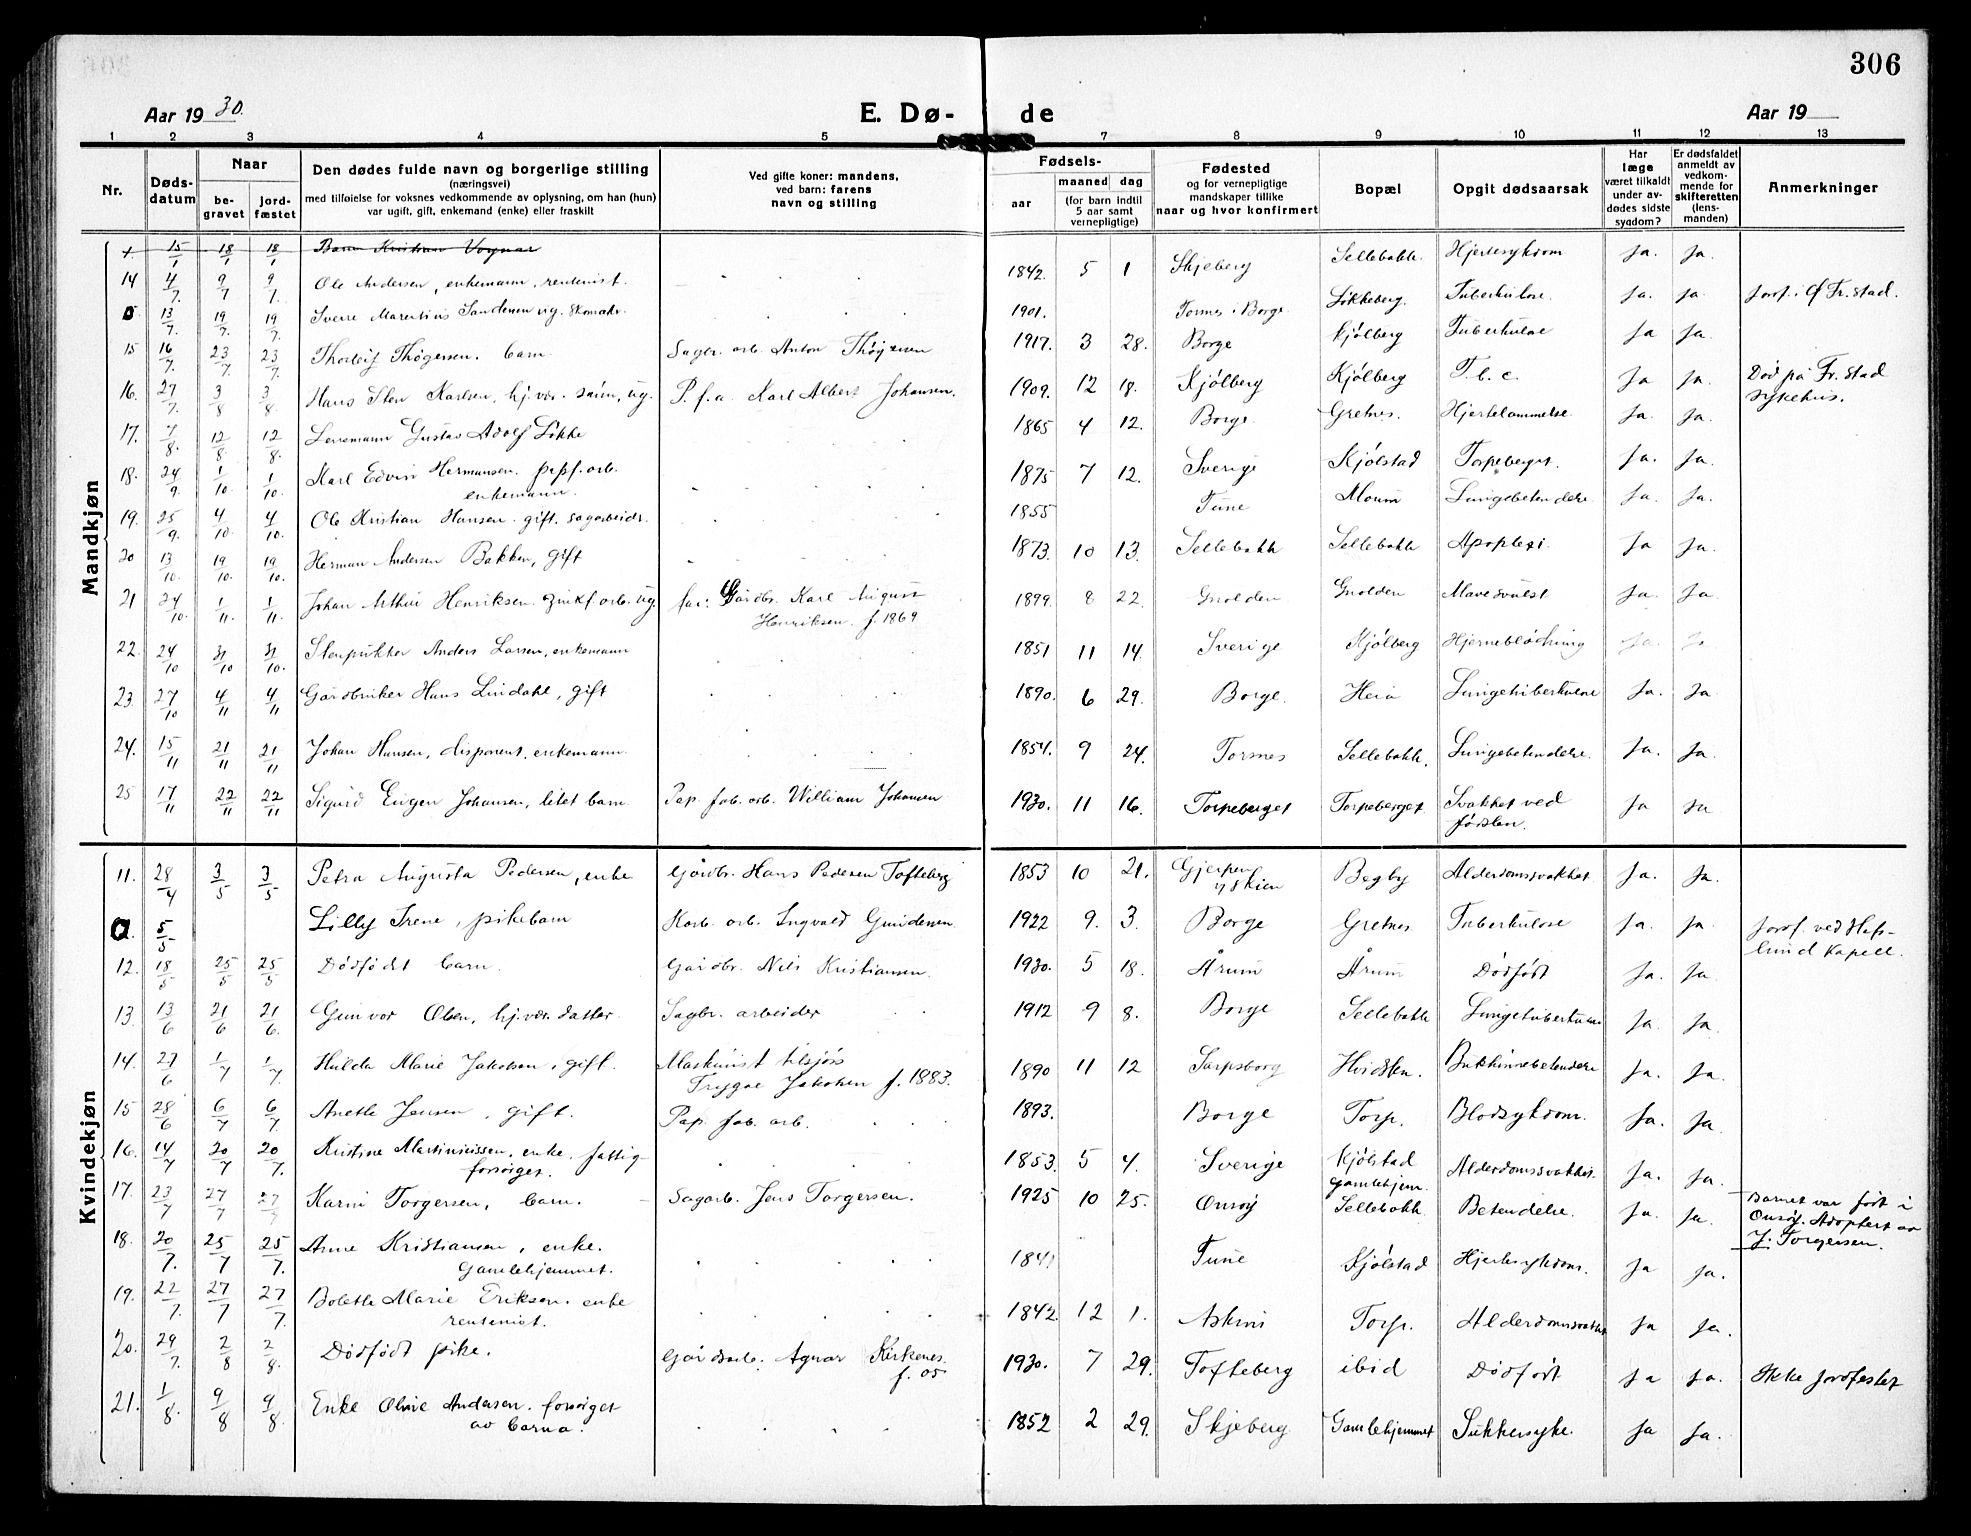 306
Aar 19 30.
E. Dø-
de
Aar 19
1 2 3 4 5 7 8 9 10 11 12 13
Nr.
Døds-
datum
Naar
be-
gravet
jord-
fæstet
Den dødes fulde navn og borgerlige stilling
(næringsvei)
med tilføielse for voksnes vedkommende av oplysning, om han (hun)
var ugift, gift, enkemand (enke) eller fraskilt
Ved gifte koner: mandens,
ved barn: farens
navn og stilling
Fødsels-
aar
maaned dag
(for barn indtil
5 aar samt
vernepligtige)
Fødested
og for vernepligtige
mandskaper tillike
naar og hvor konfirmert
Bopæl
Opgit dødsaarsak
Har
læge
været tilkaldt
under av-
dødes sidste
sygdom?
Er dødsfaldet
anmeldt av
vedkom-
mende for
skifteretten
(lens-
manden)
Anmerkninger
Mandkjøn
15/1 18/1 18/1 Barn Kristian
14 4/7. 9/7 9/7. Ole Andersen, enkemann, rentenist. 1842. 5 1 Skjeberg Sellebakk Hjertesykdom Ja. Ja.
13/7. 19/7. 19/7. Sverre Marentius ug. Skomakr. 1901. Tornes i Borge Løkkeberg. Tuberkulose. Ja. Ja Jordf. i Ø Fr.stad.
15 16/7. 23/7. 23/7. Thorleif Thøgersen. barn Sagbr. arb. Anton Thøgersen 1917. 3 28. Borge Kjølberg Tuberkulose Ja Ja.
16. 27/7. 3/8 3/8. Hans Sten Karlsen, hj.vær. sønn, ug. P. f. a. Karl Albert Johansen. 1909. 12 18. Kjølberg Kjølberg T. b. c. Ja Ja. Död på Fr.stad
sykehus.
17. 7/8. 12/8. 12/8. Lensmann Gustav Adolf Løkke 1865 4 12. Borge Gretnes. Hjertelammelse. Ja. Ja.
18. 24/9. 1/10 1/10. Karl Edvin Hermansen. papf. arb.
enkemann. 1875 7 12. Sverige Kjølstad Torpeberget. Ja. Ja.
19. 25/9. 4/10 4/10. Ole Kristian Hansen. gift. sagarbeidr. 1855 Tune Moum Lungebetendelse. Ja. Ja.
20 13/10. 19/10. 19/10. Herman Andersen Bakken, gift 1873. 10 13. Sellebakk Sellebakk Apoplexi. Ja Ja.
21 24/10. 1/11. 1/11. Johan Arthur Henriksen. Zinkf. arb. ug. far: Gårdbr. Karl August
Henriksen. f. 1869 1899. 8 22. Gnolden Gnolden Mavesvulst Ja. Ja.
22. 24/10 31/10 31/10. Stenpukker Anders Larsen, enkemann 1851 11 14. Sverige Kjølberg Hjerneblødning Ja. Ja
23. 27/10 4/11 4/11 Gårdbruker Hans Lindahl, gift 1890. 6 29. Borge. Heia Lungetuberkulose Ja. Ja
24. 15/11 21/11 21/11 Johan Hansen, disponent, enkemann. 1854. 9 24. Tornes Sellebakk. Lungebetendelse. Ja. Ja.
25 17/11 22/11 22/11 Sigurd Eugen Johansen, litet barn. Pap. fab. arb. William Johansen 1930. 11 16. Torpeberget Torpeberget Svakhet ved
fødslen. Ja Ja
Kvindekjøn
11. 28/4 3/5 3/5. Petra Augusta Pedersen, enke Gårdbr. Hans Pedersen Tofteberg 1853 10 21. Gjerpen
v/ Skien Begby Alderdomssvakhet Ja. Ja.
5/5. Lilly Irene, pikebarn arb. Ingvald Gundersen 1922 9. 3. Borge Gretnes Tuberkulose Ja. Ja. Jordf. ved Hafs-
lund kapell.
12. 18/5 25/5 25/5 Dödfødt barn Gårdbr. Nils Kristiansen. 1930. 5 18. Årum Årum Dödfödt Ja. Ja.
13. 13/6 21/6 21/6. Gunvor Olsen, hj.vær. datter. Sagbr. arbeider 1912 9 8. Borge Sellebakk Lungetuberkulose Ja. Ja.
14. 27/6 1/7 1/7. Hulda Marie Jakobsen, gift. Maskinist tilsjøs
Trygve Jakobsen f. 1883. 1890 11 12 Sarpsborg Hvidsten. Bukhinnebetendelse Ja. Ja.
15 28/6 6/7 6/7. Anette Jensen, gift. Pap. fab. arb. 1893. Borge Torp. Blodsykdom. Ja. Ja.
16. 14/7 20/7 20/7. Kristine Martiniussen, enke, fattig-
forsörget. 1853. 5 4. Sverige Kjølstad
gamlehjem. Alderdomssvakhet. Ja. Ja.
17. 23/7 27/7 27/7 Karin Torgersen, barn. Sagarb. Jens Torgersen. 1925 10 25. Onsøy Sellebakk Betendelse. Ja. Ja. Barnet var født i
Onsøy. Adoptert av
J. Torgersen.
18. 20/7. 25/7 25/7. Anne Kristiansen, enke.
Gamlehjemmet. 1841 Tune Kjølstad Hjertesykdom. Ja Ja.
19. 22/7. 27/7 27/7. Bolette Marie Eriksen. enke
rentenist. 1842. 12 1. Askim Torp. Alderdomssvakhet Ja Ja.
20. 29/7. 2/8 2/8. Dödfödt pike. Gårdsarb. Agnar Kirkenes.
f. 05 1930. 7 29. Tofteberg ibid Dödfödt Ja Ja. Ikke jordfestet
21. 1/8. 9/8 9/8. Enke Oline Andersen. forsörget
av barna. 1852 2 29. Skjeberg Gamlehjemmet Sukkersyke. Ja Ja.